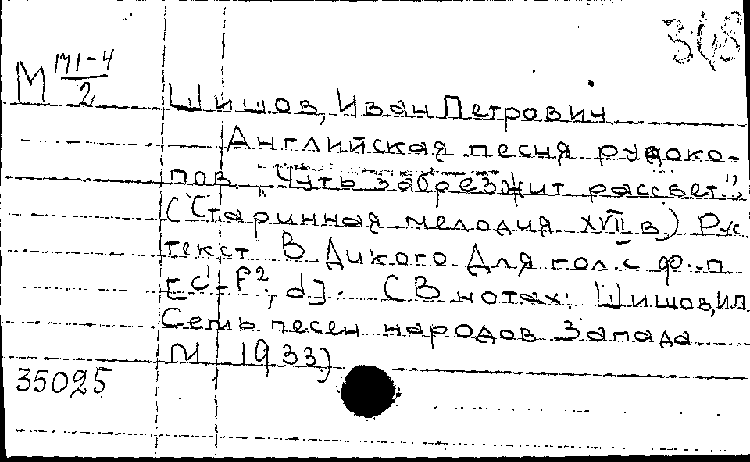 368
М М1-4/2
Шишов, Иван Петрович
Английская песня рудоко-
пов „Чуть забрезжит рассвет..."
(Старинная мелодия XVII в.) Рус
текст В Дикого Для гол. с ф.-п
[c¹-f², d]. (В нотах: Шишов, И.П.
Семь песен народов Запада
М 1933)
35025